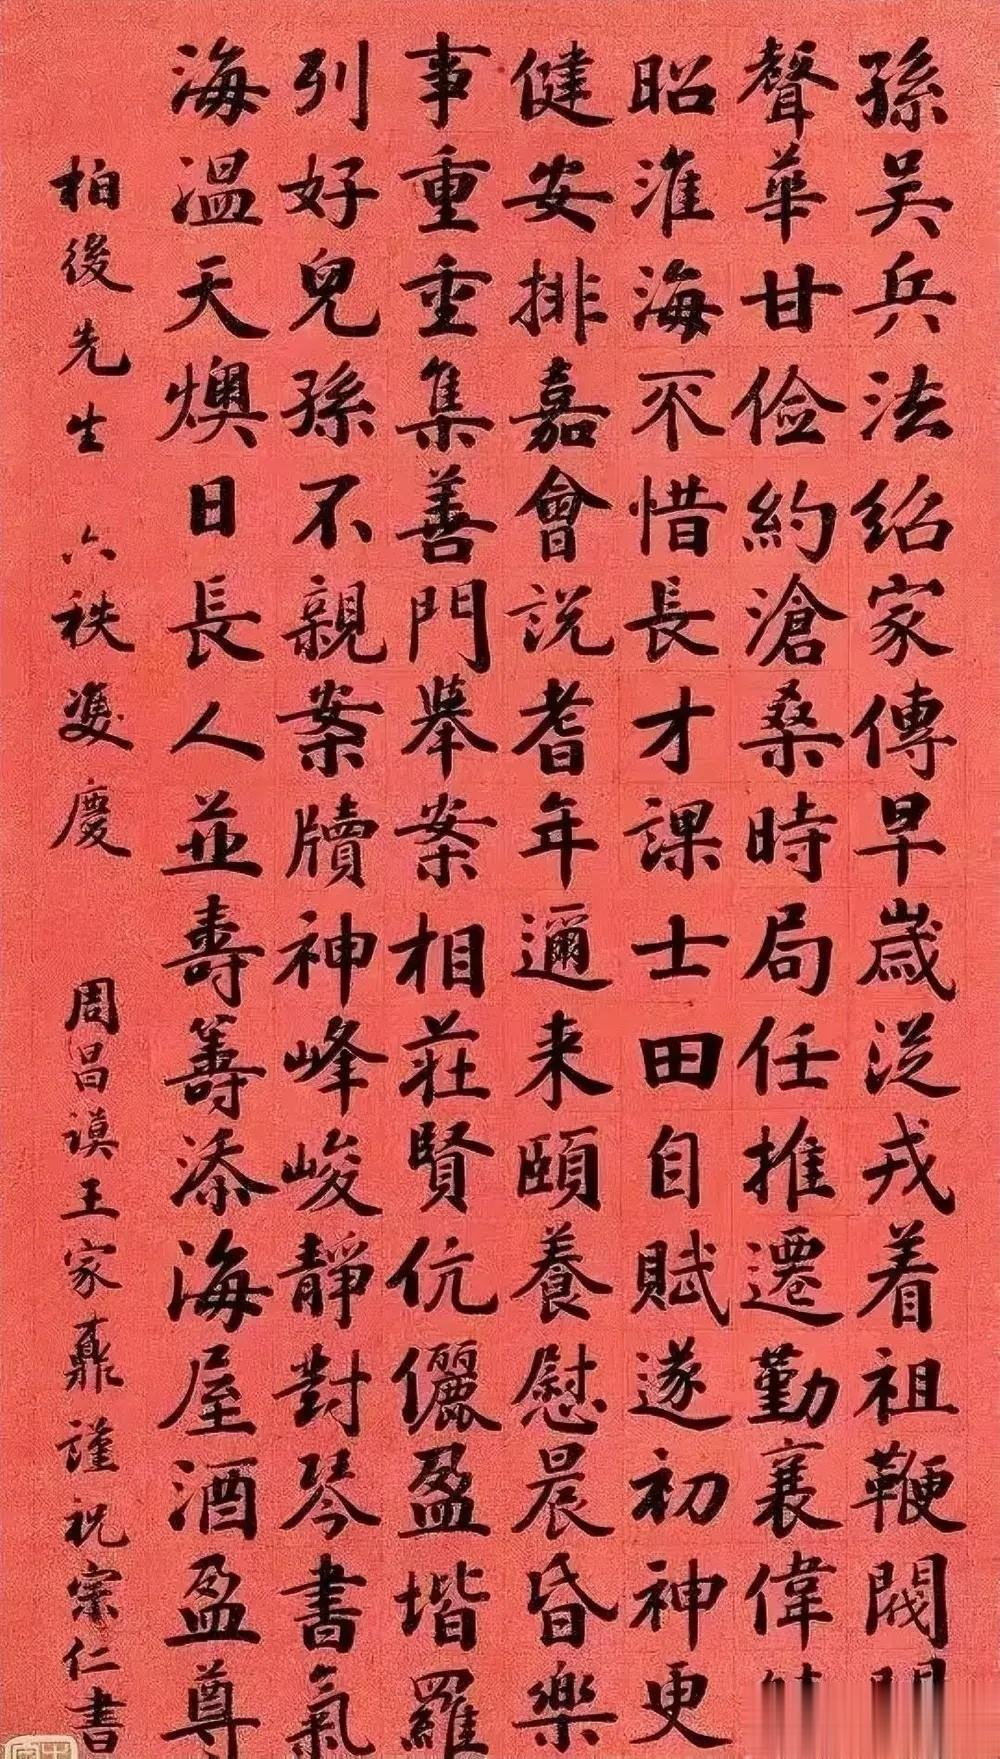 孫吴兵法紹家傳早歲從戎着祖鞭閥閱
聲華甘儉約滄桑時局任推遷勤襄偉
昭淮海不惜長才課士田自賦遂初神更
健安排嘉會説耆年邇来頤養慰晨昏樂
事重重集善門舉案相莊賢伉儷盈堦羅
列好兒孫不親案牘神峰峻靜對琴書氣
海温天燠日長人並壽籌添海屋酒盈尊
柏後先生 六秩雙慶 周昌謨王家鼐謹祝宗仁書